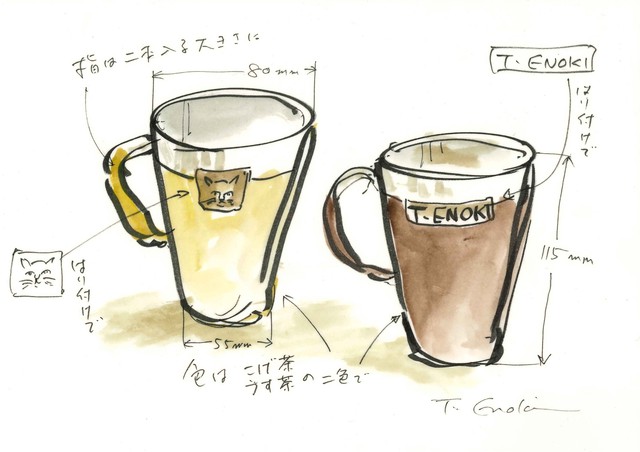 指は二本入る大きさに
80mm
T. ENOKI
はり付けで
T. ENOKI
はり付けで
115mm
55mm
色は こげ茶
うす茶 の二色で
T. Enoki